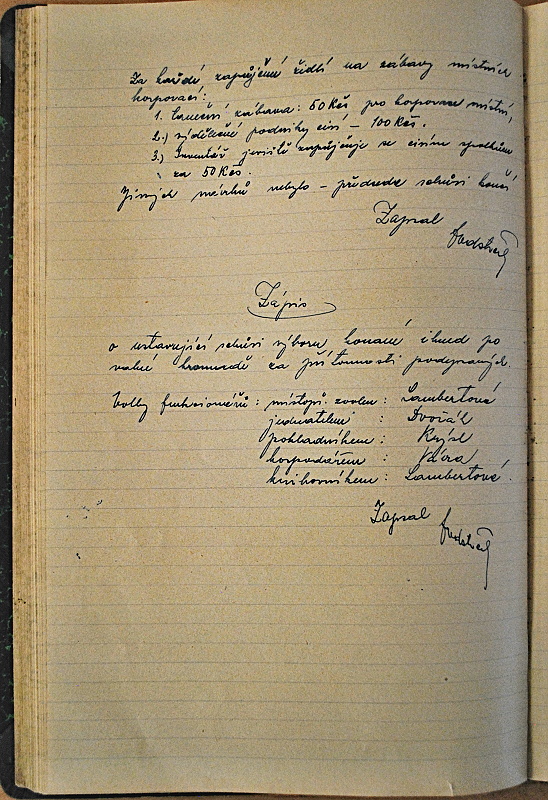 Za každé zapůjčené židlí na zábavy místních
korporací:
1. taneční zábava: 50 Kčs pro korporace místní,
2.) výdělečné podniky činí – 100 Kčs.
3.) Inventář jeviště zapůjčuje se cizím spolkům
za 50 Kčs.
Jiných návrhů nebylo – předseda schůzi končí
Zapsal
Zápis
o ustavující schůzi výboru konané ihned po
valné hromadě za přítomnosti podepsaných.
Volby funkcionářů: místopř. zvolen: Lambertová
jednatelem : Dvořák
pokladníkem : Rejzl
hospodářem : Vávra
knihovníkem : Lambertová.
Zapsal